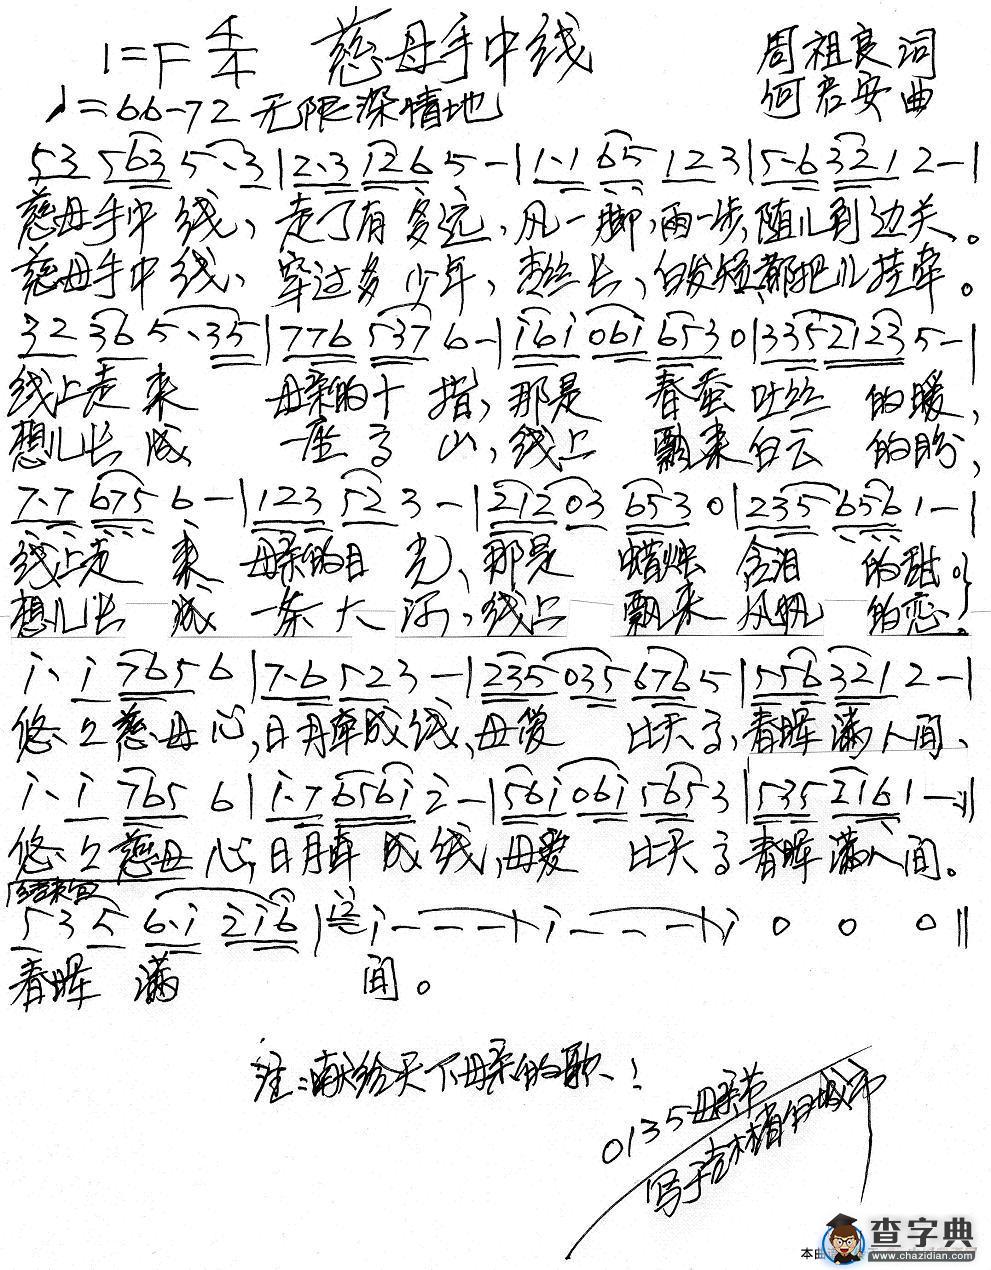 1=F 4/4 慈母手中线 周祖良词
♩=66-72 无限深情地 何君安曲
53 563 5·3 | 2·3 126 5 - | 1·1 65 123 | 5·6 321 2 - |
慈母手中线，走了有多远，风一脚，雨一步，随儿到边关。
慈母手中线，穿过多少年，青丝长，白发短，都把儿挂牵。
32 36 5·35 | 776 537 6 - | i6i 06i 653 0 | 335 2123 5 - |
线上走来 母亲的十指，那是 春蚕吐丝 的暖，
想儿长成 一座高山，线上 飘来白云 的盼，
7·7 675 6 - | 123 52 3 - | 212 03 653 0 | 235 656 1 - |
线上走来 母亲的目光，那是 蜡烛含泪 的甜。
想儿长成 一条大河，线上 飘来风帆 的恋。
i·i 765 6 | 7·6 523 - | 235 035 676 5 | 556 321 2 - |
悠悠慈母心，日月牵成线，母爱 比天高，春晖满人间、
i·i 765 6 | i·7 656i 2 - | 56i 06i 565 3 | 535 216 1 - ‖
悠悠慈母心，日月牵成线，母爱 比天高 春晖满人间。
结束句
535 6·i 2i6 | i - - - | i - - - | i 0 0 0 ‖
春晖 满 间。
注：献给天下母亲的歌！
0135母亲节
写于吉林省
本曲
查字典
www.chazidian.com